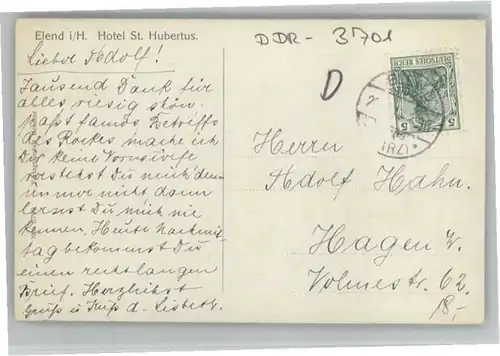 Elend i/H. Hotel St. Hubertus.
DDR - 3701
Lieber Adolf!
Tausend Dank für
alles, riesig schön.
paßt famos. Betreffs
des Rockes mache ich
Dir keine Vorwürfe
verstehst Du mich denn
nur nicht dann
lernst Du mich nie
kennen. Heute nachmit-
tag bekommst Du
einen recht langen
Brief. Herzlichst
Gruß u Kuß d. Lisbeth.
D
DEUTSCHES REICH
5 5
Herrn
Adolf Hahn.
Hagen W.
Volmestr. 62.
18,-